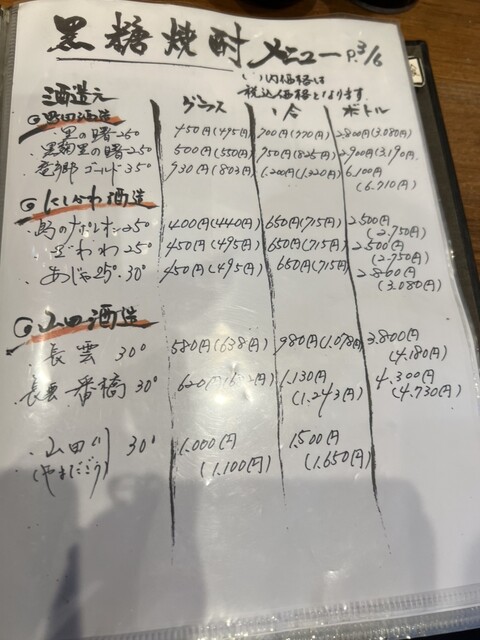 黒糖焼酎メニュー P.3/6
( )内価格は
税込価格となります。
酒造元 グラス 1合 ボトル
町田酒造
里の曙25° 450円(495円) 700円(770円) 2.800円(3.080円)
黒麹里の曙25° 500円(550円) 750円(825円) 2.900円(3.190円)
奄美郷ゴールド35° 930円(803円) 1.200円(1.320円) 6.100円
(6.710円)
にしかわ酒造
島のナポレオン25° 400円(440円) 650円(715円) 2.500円
(2.750円)
ざわわ25° 450円(495円) 650円(715円) 2.500円
(2.750円)
あじゃ25°.30° 450円(495円) 650円(715円) 2.800円
(3.080円)
山田酒造
長雲 30° 580円(638円) 980円(1.078円) 3.800円
(4.180円)
長雲一番橋30° 620円 1.130円 4.300円
(1.243円) (4.730円)
山田 30° 1.000円 1.500円
(やまだごう) (1.100円) (1.650円)